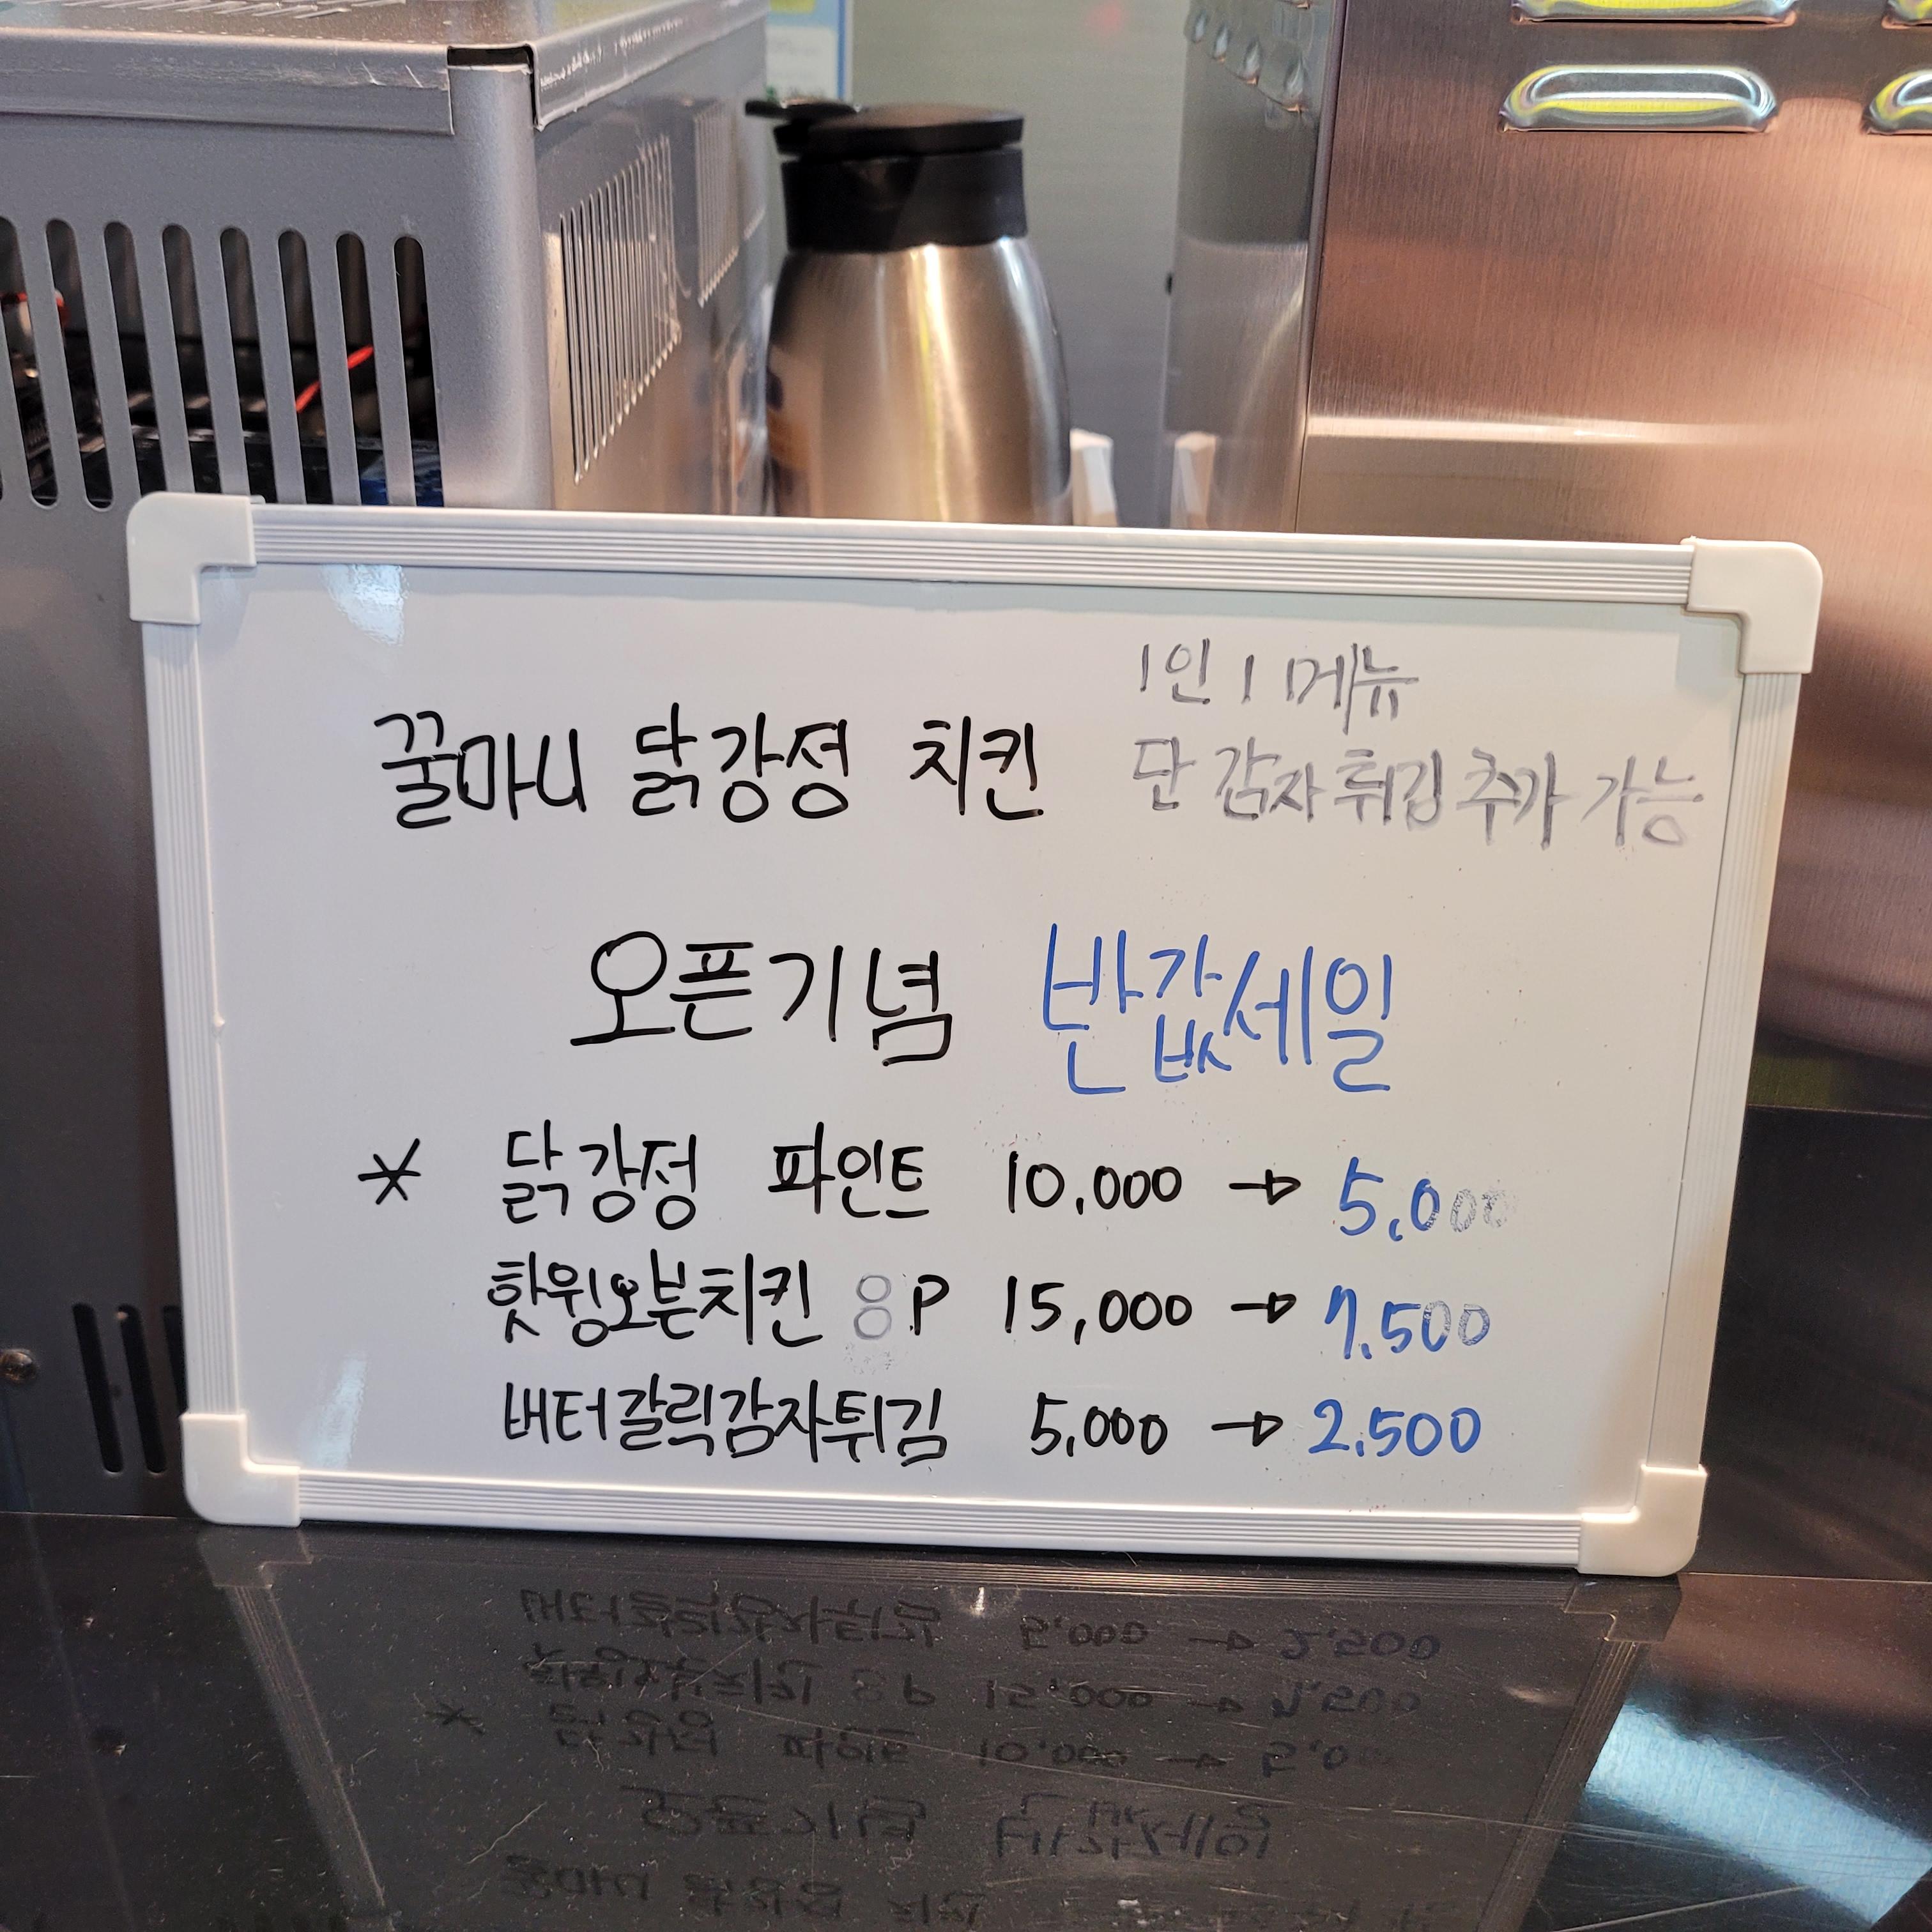 1인 1 메뉴
꿀마니 닭강정 치킨
단 감자튀김 추가 가능
오픈기념 반값세일
* 닭강정 파인트 10,000 → 5,000
핫윙오븐치킨 8P 15,000 → 7,500
버터갈릭감자튀김 5,000 → 2,500